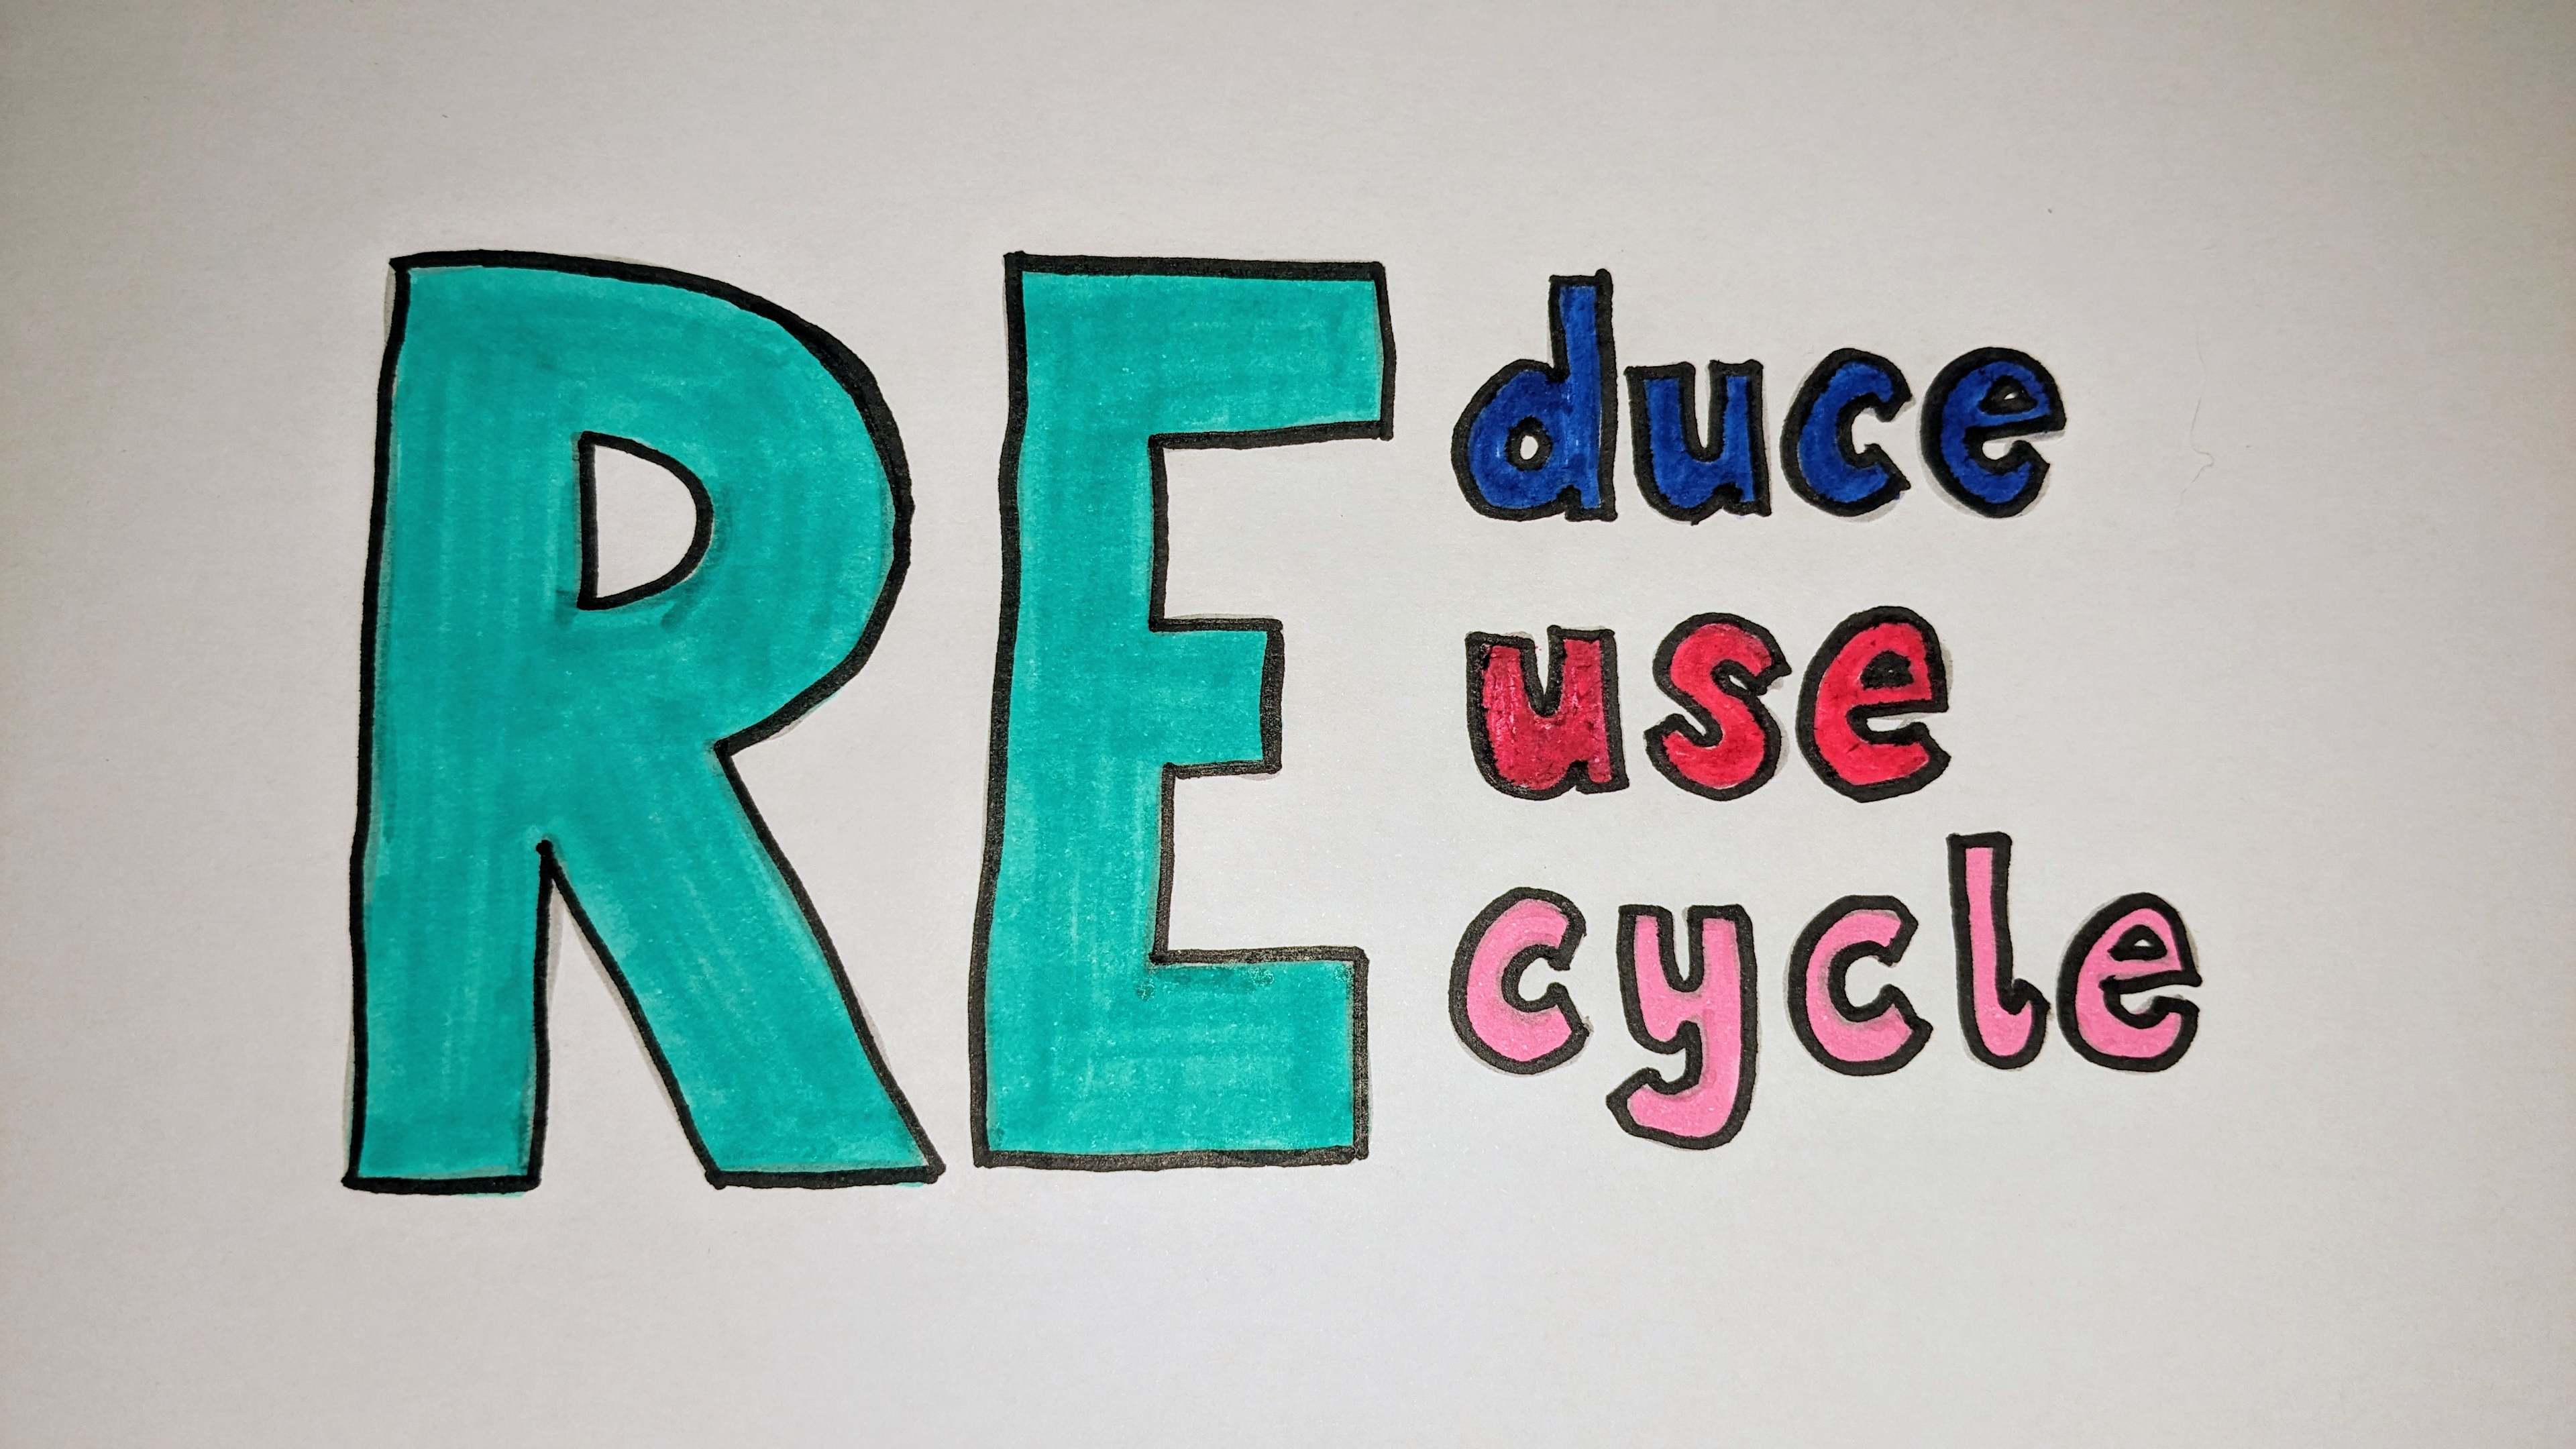 RE
duce
use
cycle